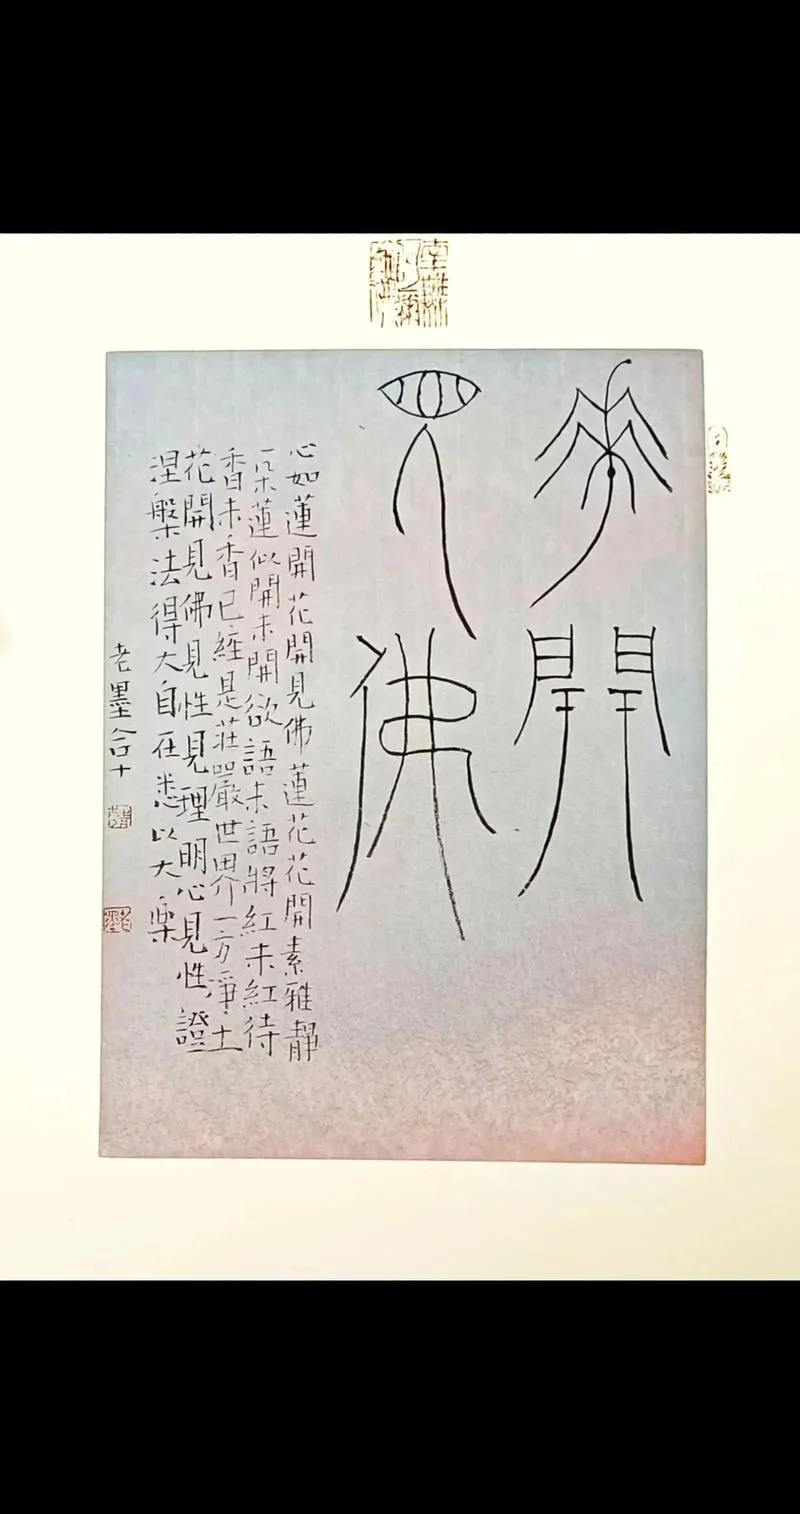 花開
見佛
心如蓮開花開見佛蓮花花開素雅靜
一朵蓮似開未開欲語未語將紅未紅待
香未香已經是莊嚴世界一方淨土
花開見佛見性見理明心見性證
涅槃法得大自在悉以大樂
老墨合十
南無阿彌陀佛
老墨